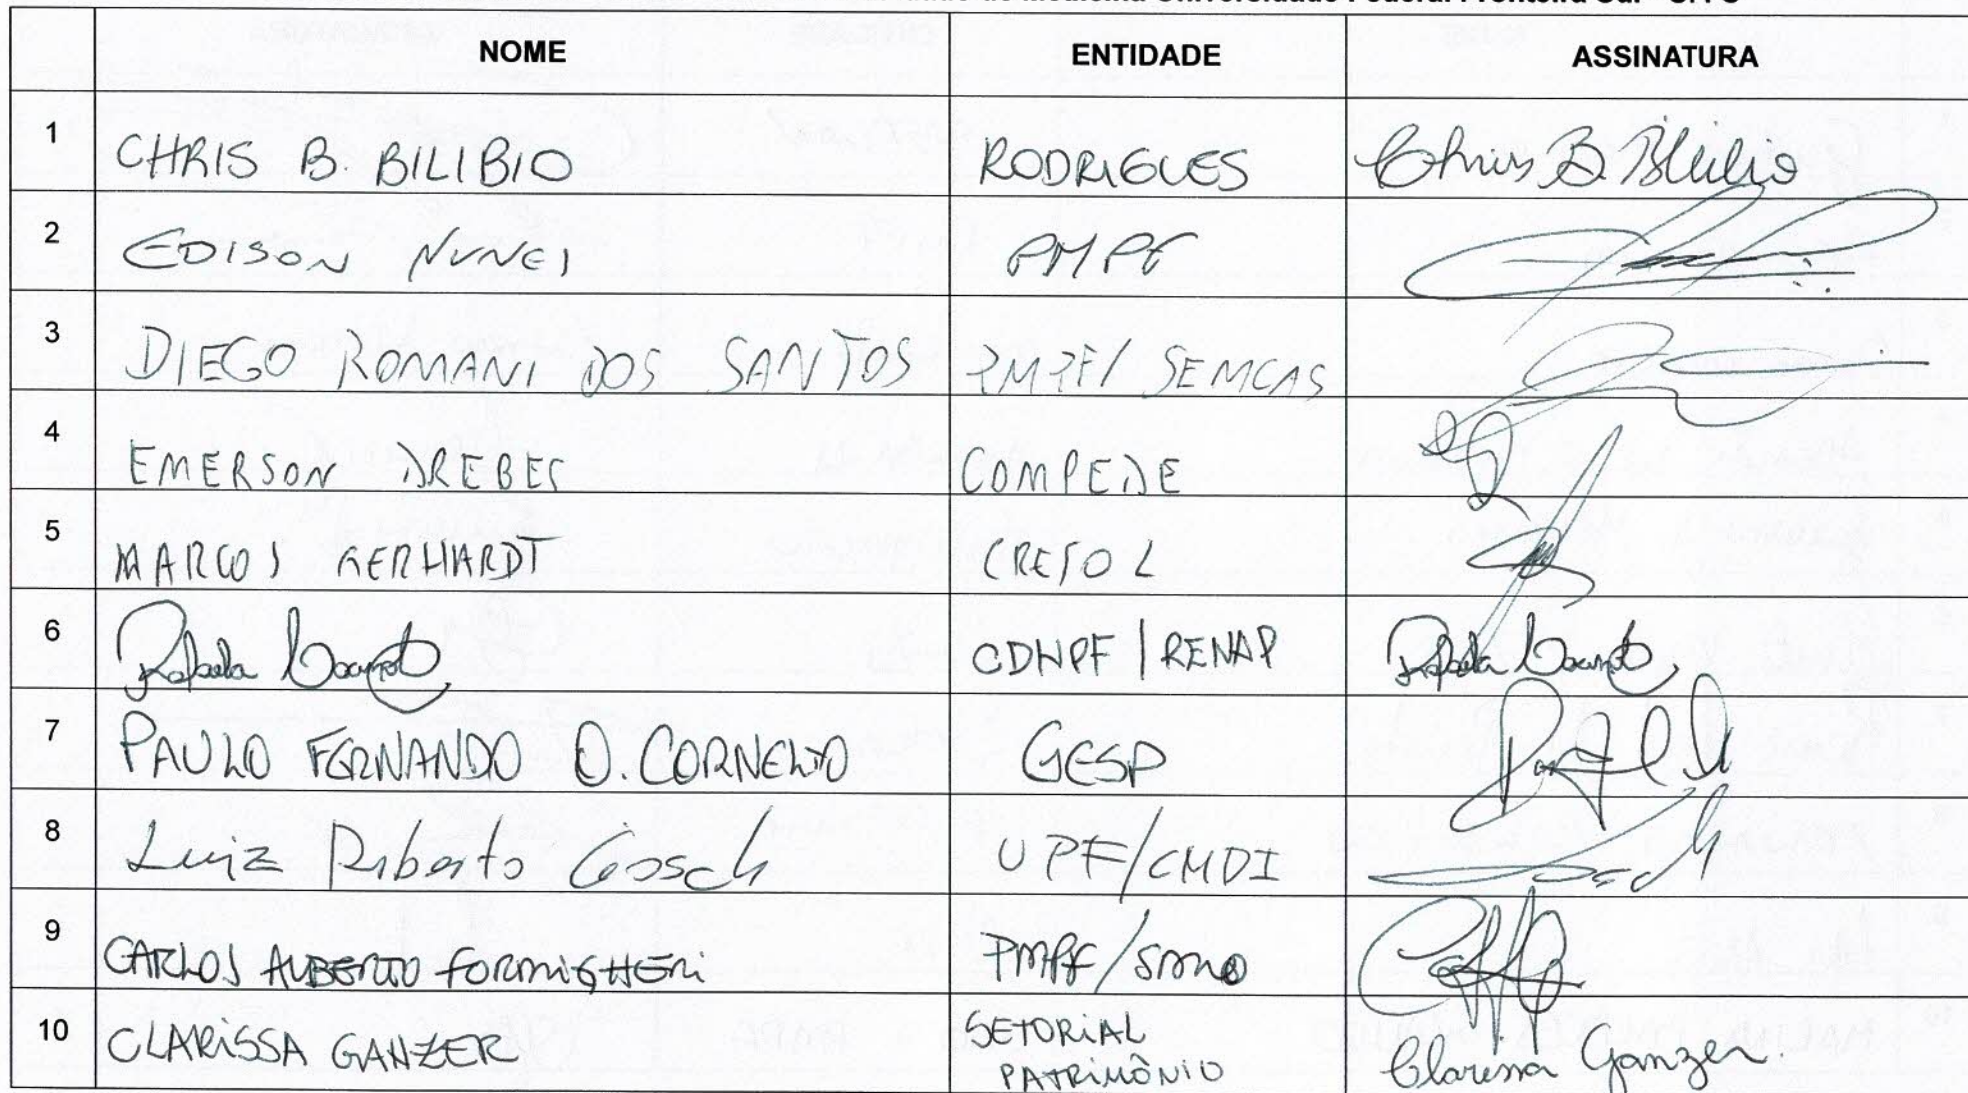 Medicina Universidade Federal Fronteira Sul
NOME ENTIDADE ASSINATURA
1 CHRIS B. BILIBIO RODRIGUES Chris B. Bilibio
2 EDISON NUNES PMPF
3 DIEGO ROMANI DOS SANTOS PMPF/ SEMCAS
4 EMERSON DREBES COMPEDE
5 MARCOS GERHARDT CRESOL
6 Rafaela CDHPF | RENAP Rafaela
7 PAULO FERNANDO O. CORNELIO GESP
8 Luiz Roberto Gosch UPF/CMDI
9 CARLOS ALBERTO FORMIGHERI PMPF/
10 CLARISSA GANZER SETORIAL PATRIMÔNIO Clarissa Ganzer.